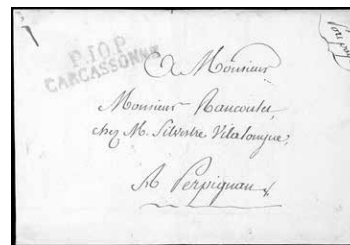 P.10.P.
CARCASSONNE
A Monsieur
Monsieur
chez M. Silvestre Vilalongue,
A Perpignan